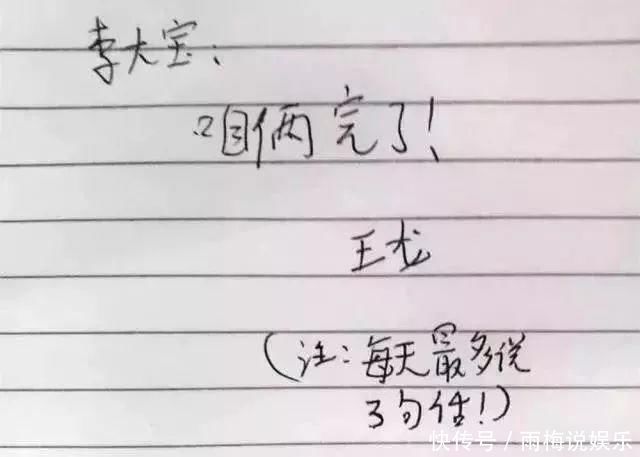 李大宝：
咱俩完了！
王龙
（注：每天最多说
3句话！）
快传号／雨梅说娱乐